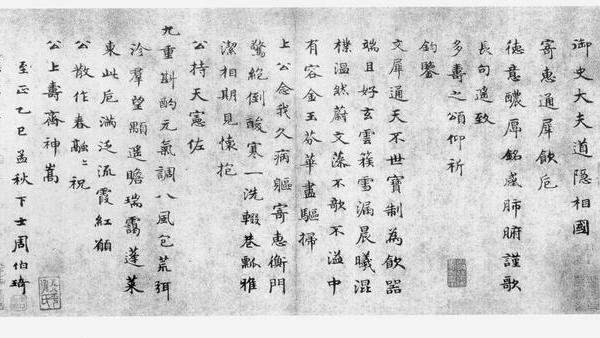 御史大夫道隱相國
寄惠通犀飲卮
德意醲厚銘感肺腑謹歌
長句遙致
多壽之頌仰祈
鈞鑒
文犀通天不世寶制為飲器
端且好玄雲蔟雪漏晨曦混
樸溫然蔚文藻不歌不溢中
有容金玉芬華盡驅掃
上公念我久病軀寄惠衡門
驚絕倒酸寒一洗輟巷瓢雅
潔相期見懷抱
公持天憲佐
九重斟酌元氣調八風包荒弭
沴羣望顒遙瞻瑞靄蓬萊
東此卮滿泛流霞紅願
公散作春融〻祝
公上壽齊神嵩
至正乙巳孟秋下士周伯琦